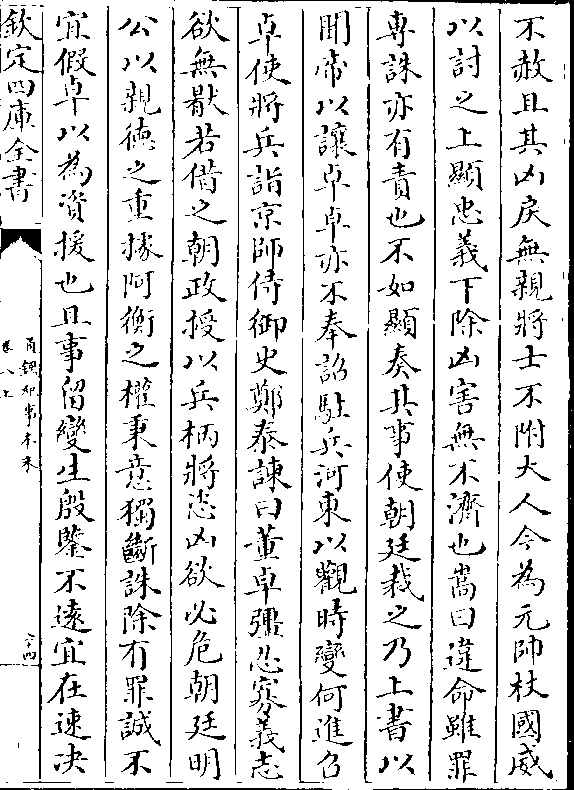 不赦且其凶戾無親將士不附大人今為元帥杖國威
以討之上顯忠義下除凶害無不濟也嵩曰違命雖罪
専誅亦有責也不如顯奏其事使朝廷裁之乃上書以
聞帝以讓卓卓亦不奉詔駐兵河東以觀時變何進召
卓使將兵詣京師侍御史鄭泰諫曰董卓彊忍寡義志
欲無厭若借之朝政授以兵柄將恣凶欲必危朝廷明
公以親德之重據阿衡之權秉意獨斷誅除有罪誠不
宜假卓以為資援也且事留變生殷鑒不遠宜在速决
欽定四庫全書
通鑑紀事本末
卷八上